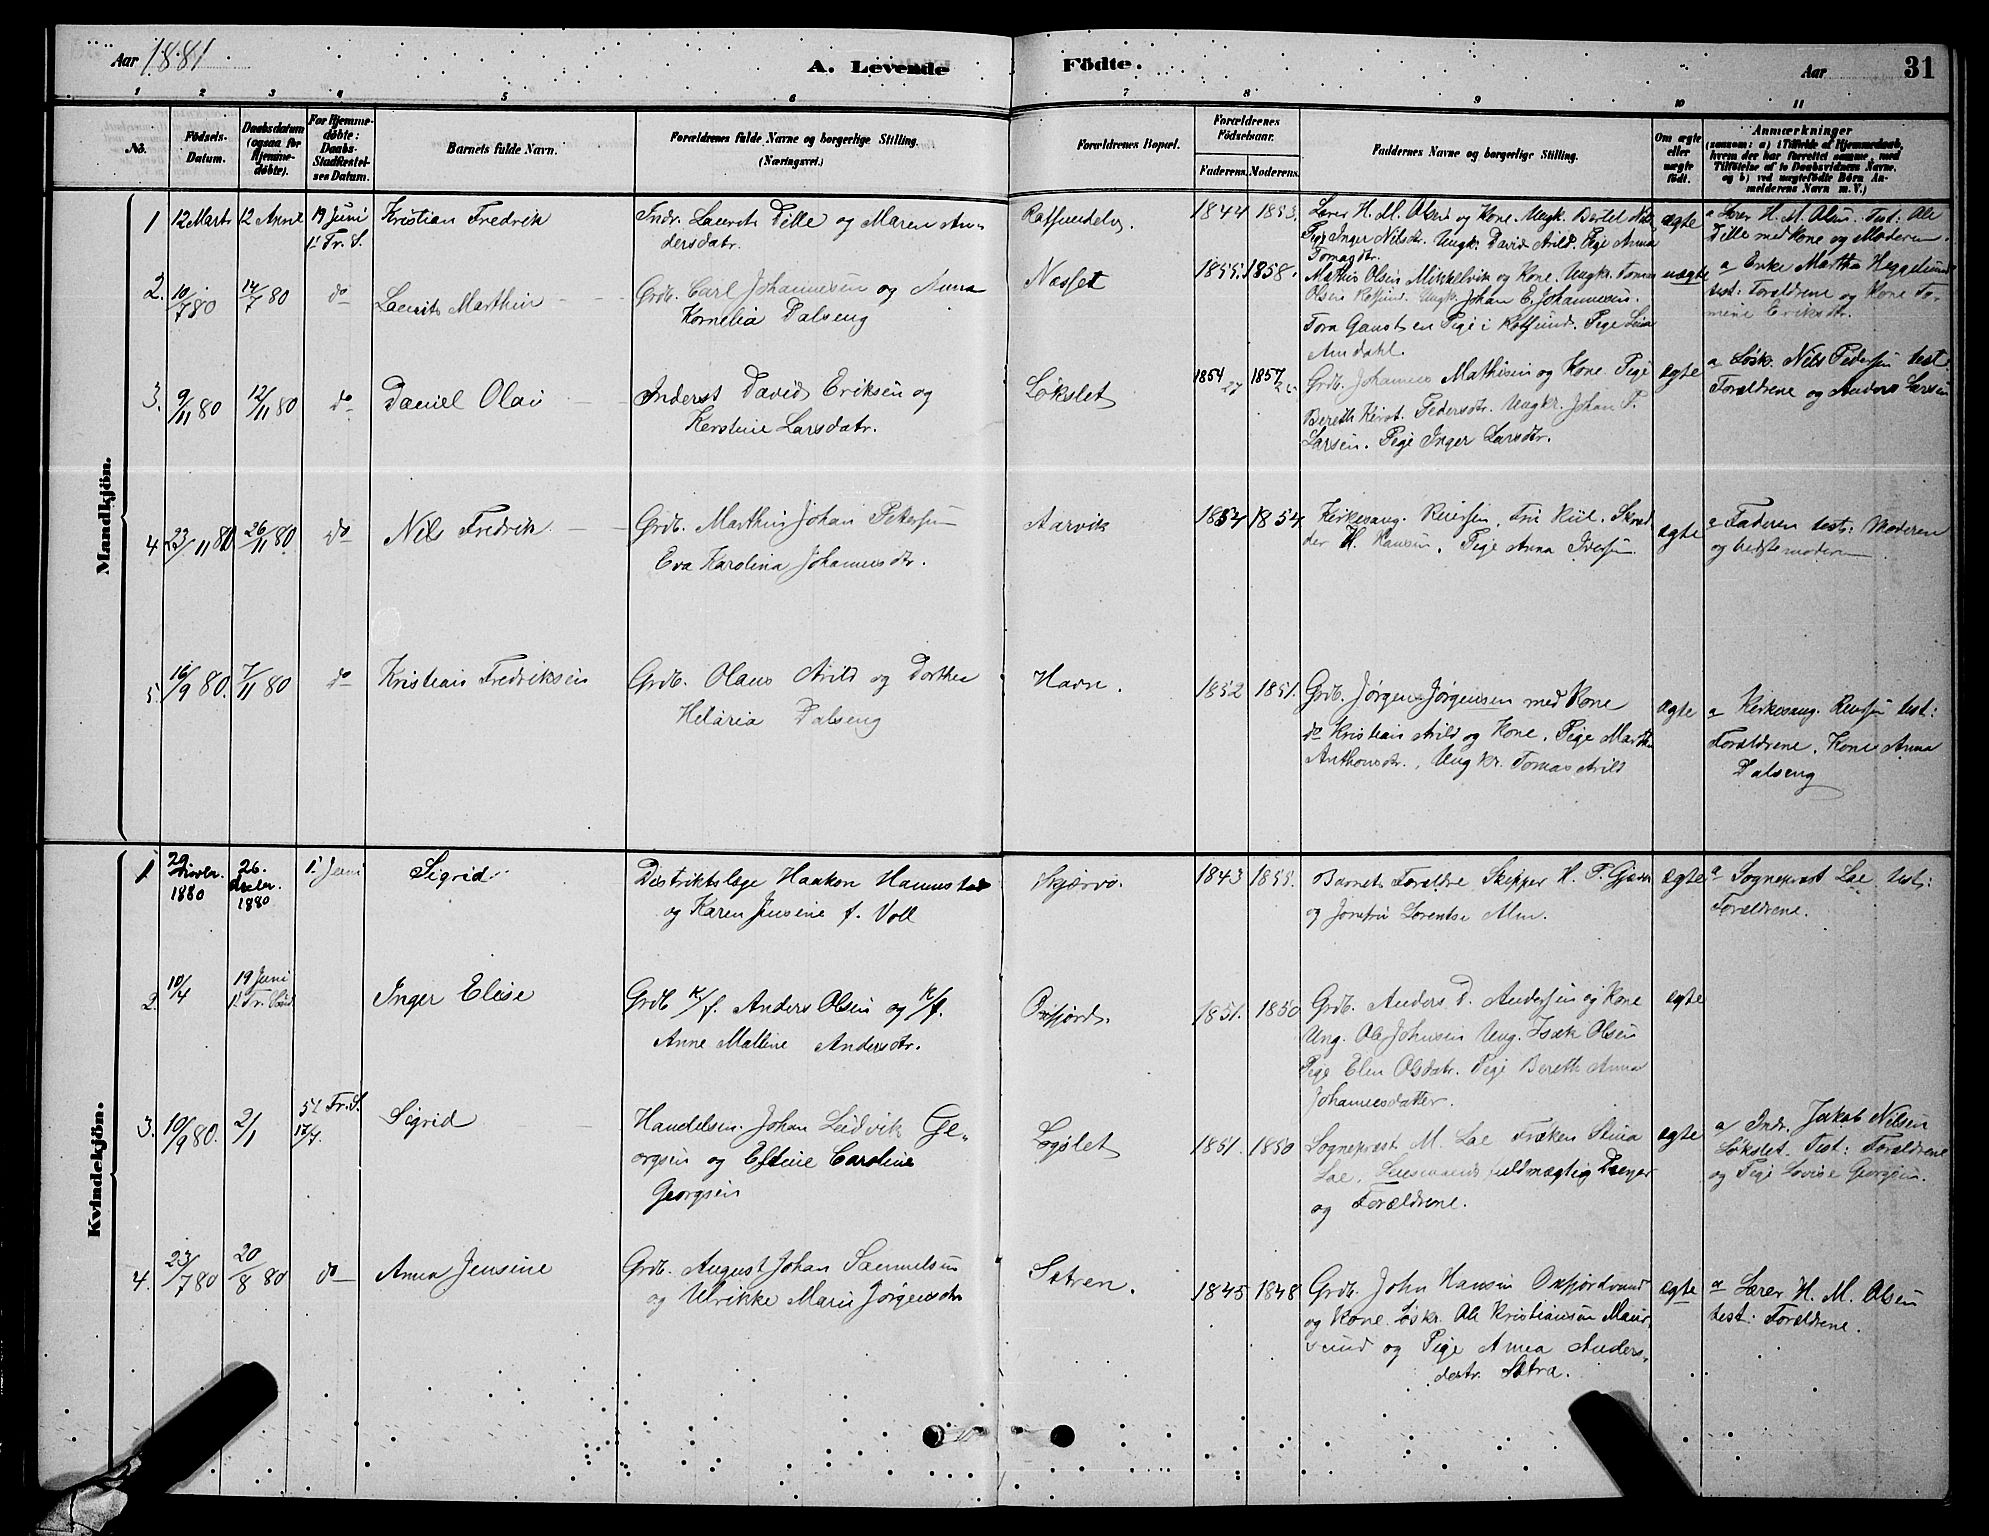 Aar 1881 A. Levende Födte. Aar 31
1 2 3 4 5 6 7 8 9 10 11
No. Födsels-Datum. Daabsdatum (ogsaa for Hjemme-döbte). For Hjemme-döbte: Daabs-Stadfæstel-ses Datum. Barnets fulde Navn. Forældrenes fulde Navne og borgerlige Stilling. (Næringsvei.) Forældrenes Bopæl. Forældrenes Födselsaar. Faderens. Moderens. Faddernes Navne og borgerlige Stilling. Om ægte eller uægte födt. Anmærkninger (saasom: a) i Tilfælde af Hjemmedaab, hvem der har forrettet samme, med Tilföielse af to Daabsvidners Navne, og b) ved uægtefödte Börn An-melderens Navn m. V.)
Mandkjön.
1 12 Marts 19 Juni Kristian Fredrik Indr. Laurits Dille og Maren An-
1. Tr. S. dersdatr.
1844 1853. Lærer H. M. Olsen og Kone. Ungk. Bertel Nils
Pige Inger Nilsdtr. Ungk. David Arild. Pige Anna
Tomasdtr.
ægte a Lærer H. M. Olsen. Test: Ole
Dille med Kone og Moderen.
2. 10/7 80 14/7 80 do Laurits Marthin Grdb. Carl Johannesen og Anna
Kornelia Dalseng
Næsset 1855. 1858. Mathis Olsen Mikkelvik og Kone. Ungk. Tomas
Olsen Rotsund. Ungk. Johan E. Johannesen.
en Pige i Rotsund. Pige Lina
Amdahl.
uægte a Enke Martha Heggelund
test: Forældrene og Kone
Eriksdtr.
3. 9/11 80 12/11 80 do Daniel Olai Inderst David Eriksen og
Kerstine Larsdatr.
Løkslet 1854 1857 Grdb. Johannes Mathisen og Kone. Pige
27
Bereth Kirst. Pedersdtr. Ungkr. Johan P.
Larsen. Pige Inger Larsdtr.
ægte a Løsk. Nils Pedersen test:
Forældrene og Anders Larsen
4 23/11 80 26/11 80 do Nils Fredrik Grdb. Marthin Johan Petersen
Eva Karolina Johannesdtr.
Aarvik 1854 1854 Kirkesang. Reiersen, Fru Kiil. Skræd
der H. Hansen, Pige Anna Iversen
ægte a Faderen test: Moderen
og bedstemoderen
5. 16/9 80. 7/11 80 do Kristian Fredriksen Grdb. Olaus Arild og Dorthea
Helaria Dalseng
Havn. 1852 1851. Grdb. Jørgen Jørgensen med Kone
do Kristian Arild og Kone. Pige Martha
Anthonsdtr., Ungkr. Tomas Arild
ægte a Kirkesang. Reiersen test:
Forældrene, Kone Anna
Dalseng
Kvindekjön.
1 29 Novbr. 1880 26. Decbr. 1880 1. Juni Sigrid Distriktslæge Haakon
og Karen Jensine f. Voll
Skjærvø. 1843 1855. Barnets Forældre Skipper H. P.
og Jomfru Lorentse Alm.
ægte a Sogneprest Lae test:
Forældrene.
2. 10/4 19 Juni Inger Elise Grdb k/f. Anders Olsen og k/f.
Anne Malline Andersdtr.
Oxfjord. 1851. 1850 Grdb. Anders D. Andersen og Kone
Ung. Ole Johnsen Ung. Isak Olsen
Pige Elen Olsdatr. Pige Bereth Anna
Johannesdatter.
ægte
3. 10/9 80. 2/1 5t. Tr. S. 17/7. Sigrid Handelsm. Johan Ludvik Ge-
orgsen og Estine Caroline
Georgsen
Løgslet 1851. 1850 Sogneprest M. Lae Frøken Stina
Lae. Lensmands fuldmægtig Dreyer
og Forældrene.
ægte a Indr. Jakob Nilsen
Løkslet. Test: Forældrene
og Pige Lovise Georgsen.
4. 23/7 80 20/8 80 do Anna Jensine Grdb. August Johan Samuelsen
og Ulrikke Marie Jørgensdtr
Satren. 1845 1848 Grdb. John Hansen Oxfjordvand
og Kone. Løskr. Ole Kristiansen Maur-
sund og Pige Anna Anders-
datr. Sætra.
ægte a Lærer H. M. Olsen
test: Forældrene.